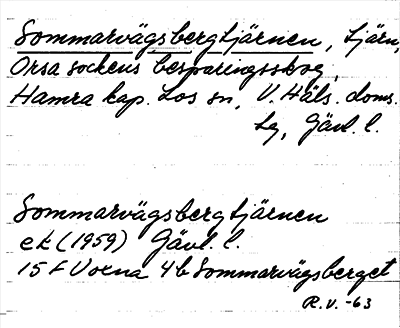 Sommarvägsbergtjärnen, tjärn,
Orsa sockens besparingsskog,
Hamra kap. Los sn, V. Häls. doms.
lg, Gävl. l.
Sommarvägsbergtjärnen
ek (1959) Gävl. l.
15 F Voxna 4b Sommarvägsberget
R.V. -63